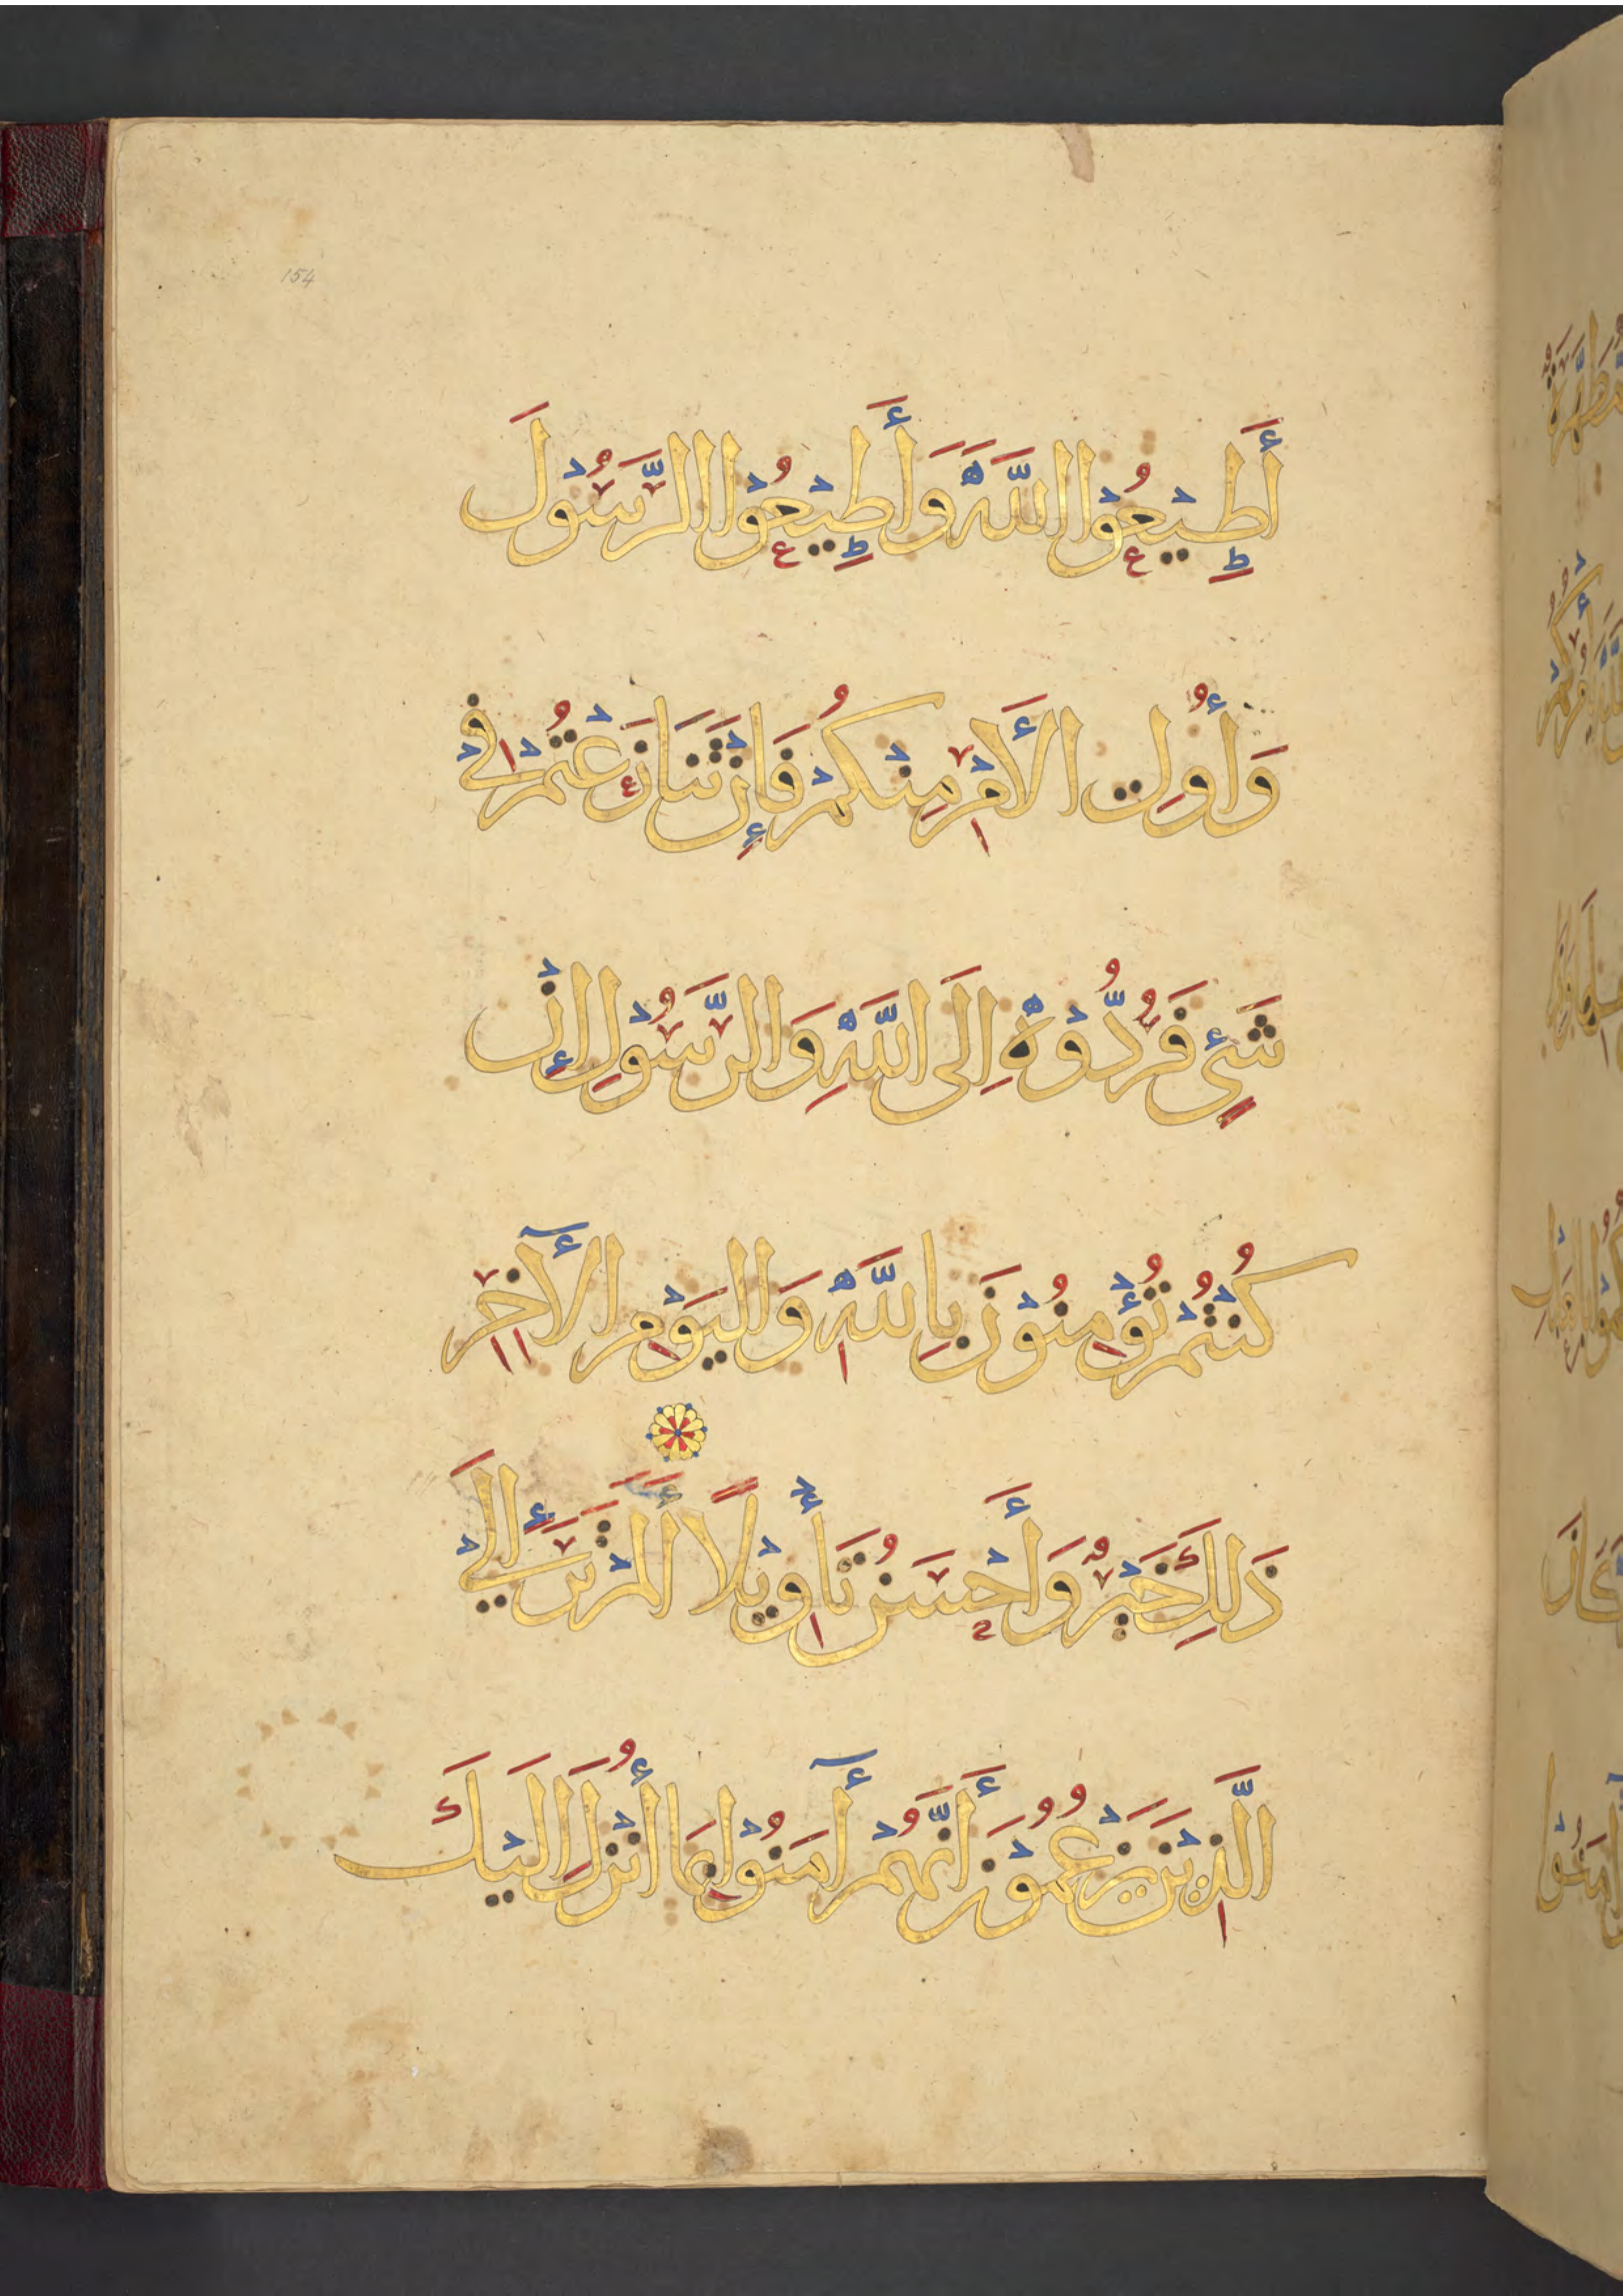 154
أَطِيْعُوْا اللَّهَ وَأَطِيْعُوْا الرَّسُوْلَ
وَأُوْلِي الْأَمْرِ مِنْكُمْ فَإِنْ تَنَازَعْتُمْ فِيْ
شَيْءٍ فَرُدُّوْهُ إِلَى اللَّهِ وَالرَّسُوْلِ إِنْ
كُنْتُمْ تُؤْمِنُوْنَ بِاللَّهِ وَالْيَوْمِ الْآخِرِ
ذَلِكَ خَيْرٌ وَأَحْسَنُ تَأْوِيْلًا أَلَمْ تَرَ إِلَيْ
الَّذِيْنَ يَزْعُمُوْنَ أَنَّهُمْ آمَنُوْا بِمَا أُنْزِلَ إِلَيْكَ